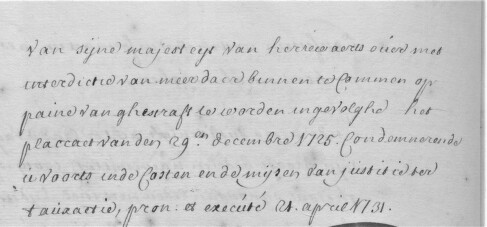 van syne majesteyt van herrewaerts over met
interdictie van meer daer binnen te Commen op
paine van ghestraft te worden ingevolghe het
placcaet van den 29.en decembre 1725. Condemnerende
u voorts inde Costen ende mijsen van justitie ter
tauxactie, pron. et exécuté 21. april 1731.